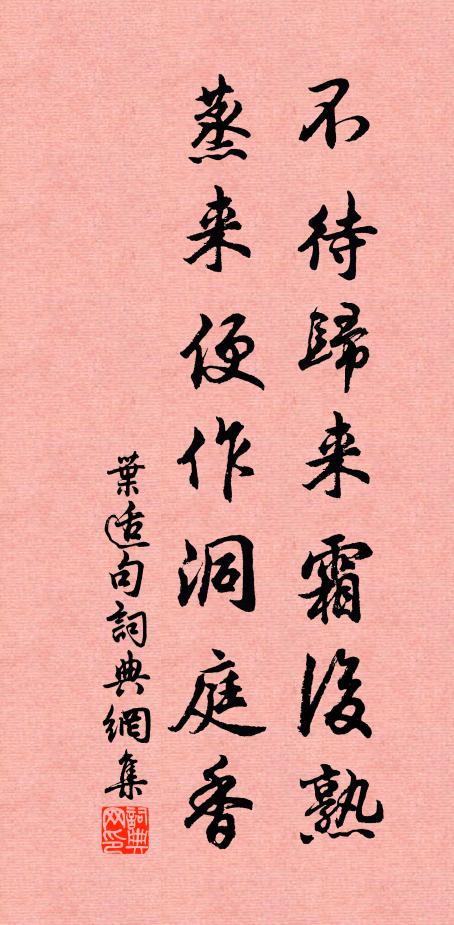 不待歸来霜後熟
蒸来便作洞庭香
葉适句詞典網集
詞典
网印